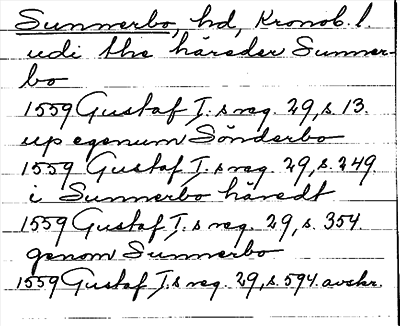 Sunnerbo, hd, Kronob. l.
udi the häreder Sunner-
bo
1559 Gustaf I:s reg. 29, s. 13.
up egenum Sönderbo
1559 Gustaf I:s reg. 29, s. 249.
i Sunnerbo häredt
1559 Gustaf I:s reg. 29, s. 354.
genom Sunnerbo
1559 Gustaf I:s reg. 29, s. 594. avskr.